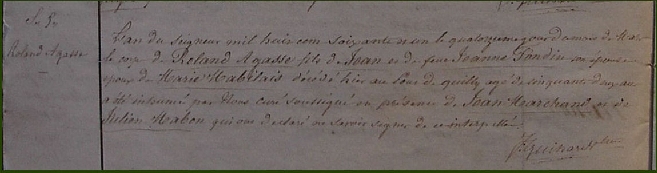 S. 5.
Roland Agasse
L'an du Seigneur mil huit cent soixante neuf le quatorzieme jour du mois de Mai
le corps de Roland Agasse fils de Jean et de feue Jeanne Landin son épouse
époux de Marie Mabilais décédé hier au bourg de quilly agé de cinquante deux ans
a été inhumé par Nous curé soussigné en présence de Jean Marchand et de
Julien Mabon qui ont déclaré ne savoir signer de ce interpellés